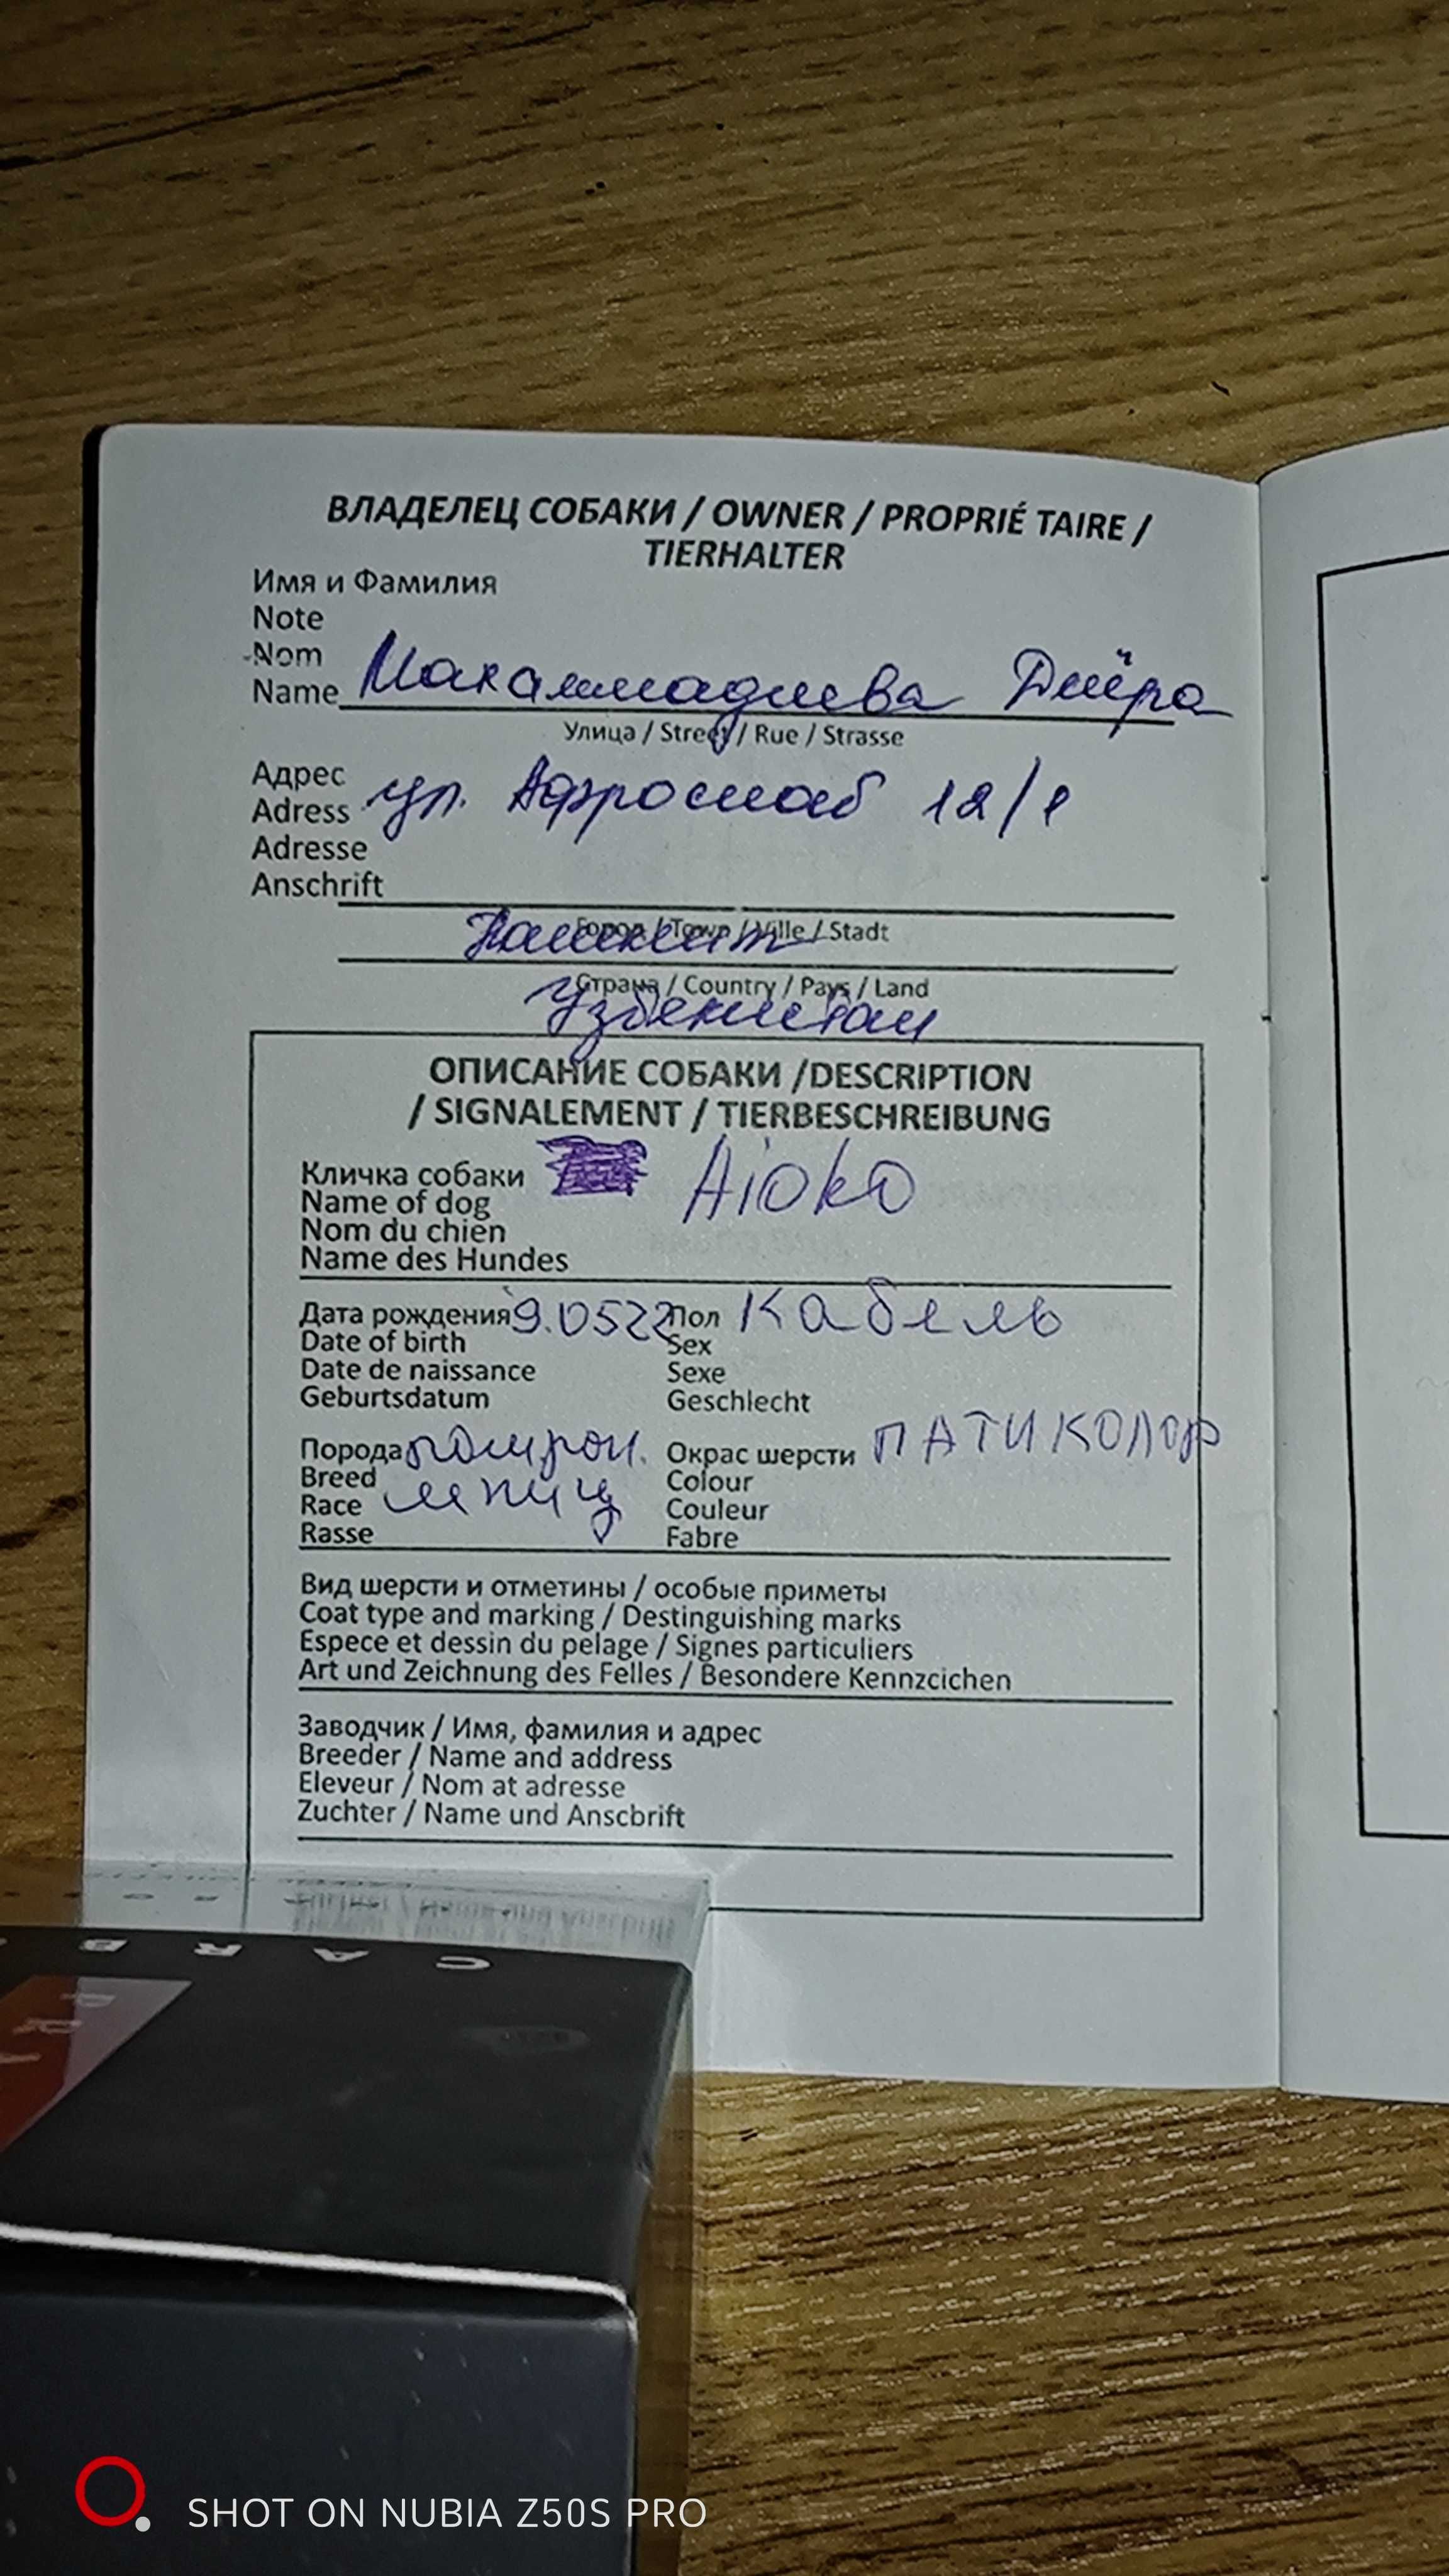 ВЛАДЕЛЕЦ СОБАКИ / OWNER / PROPRIÉ TAIRE /
TIERHALTER
Имя и Фамилия
Note
Nom
Name Махаммадиева
Улица / Street / Rue / Strasse
Адрес
Adress ул. Афросиаб 12/1
Adresse
Anschrift
Ташкент Город / Town / Ville / Stadt
Страна / Country / Pays / Land
Узбекистан
ОПИСАНИЕ СОБАКИ /DESCRIPTION
/ SIGNALEMENT / TIERBESCHREIBUNG
Кличка собаки Aioko
Name of dog
Nom du chien
Name des Hundes
Дата рождения 9.0522 Пол Кабель
Date of birth Sex
Date de naissance Sexe
Geburtsdatum Geschlecht
Порода Окрас шерсти ПАТИКОЛОР
Breed шпиц Colour
Race Couleur
Rasse Fabre
Вид шерсти и отметины / особые приметы
Coat type and marking / Destinguishing marks
Espece et dessin du pelage / Signes particuliers
Art und Zeichnung des Felles / Besondere Kennzcichen
Заводчик / Имя, фамилия и адрес
Breeder / Name and address
Eleveur / Nom at adresse
Zuchter / Name und Anscbrift
SHOT ON NUBIA Z50S PRO